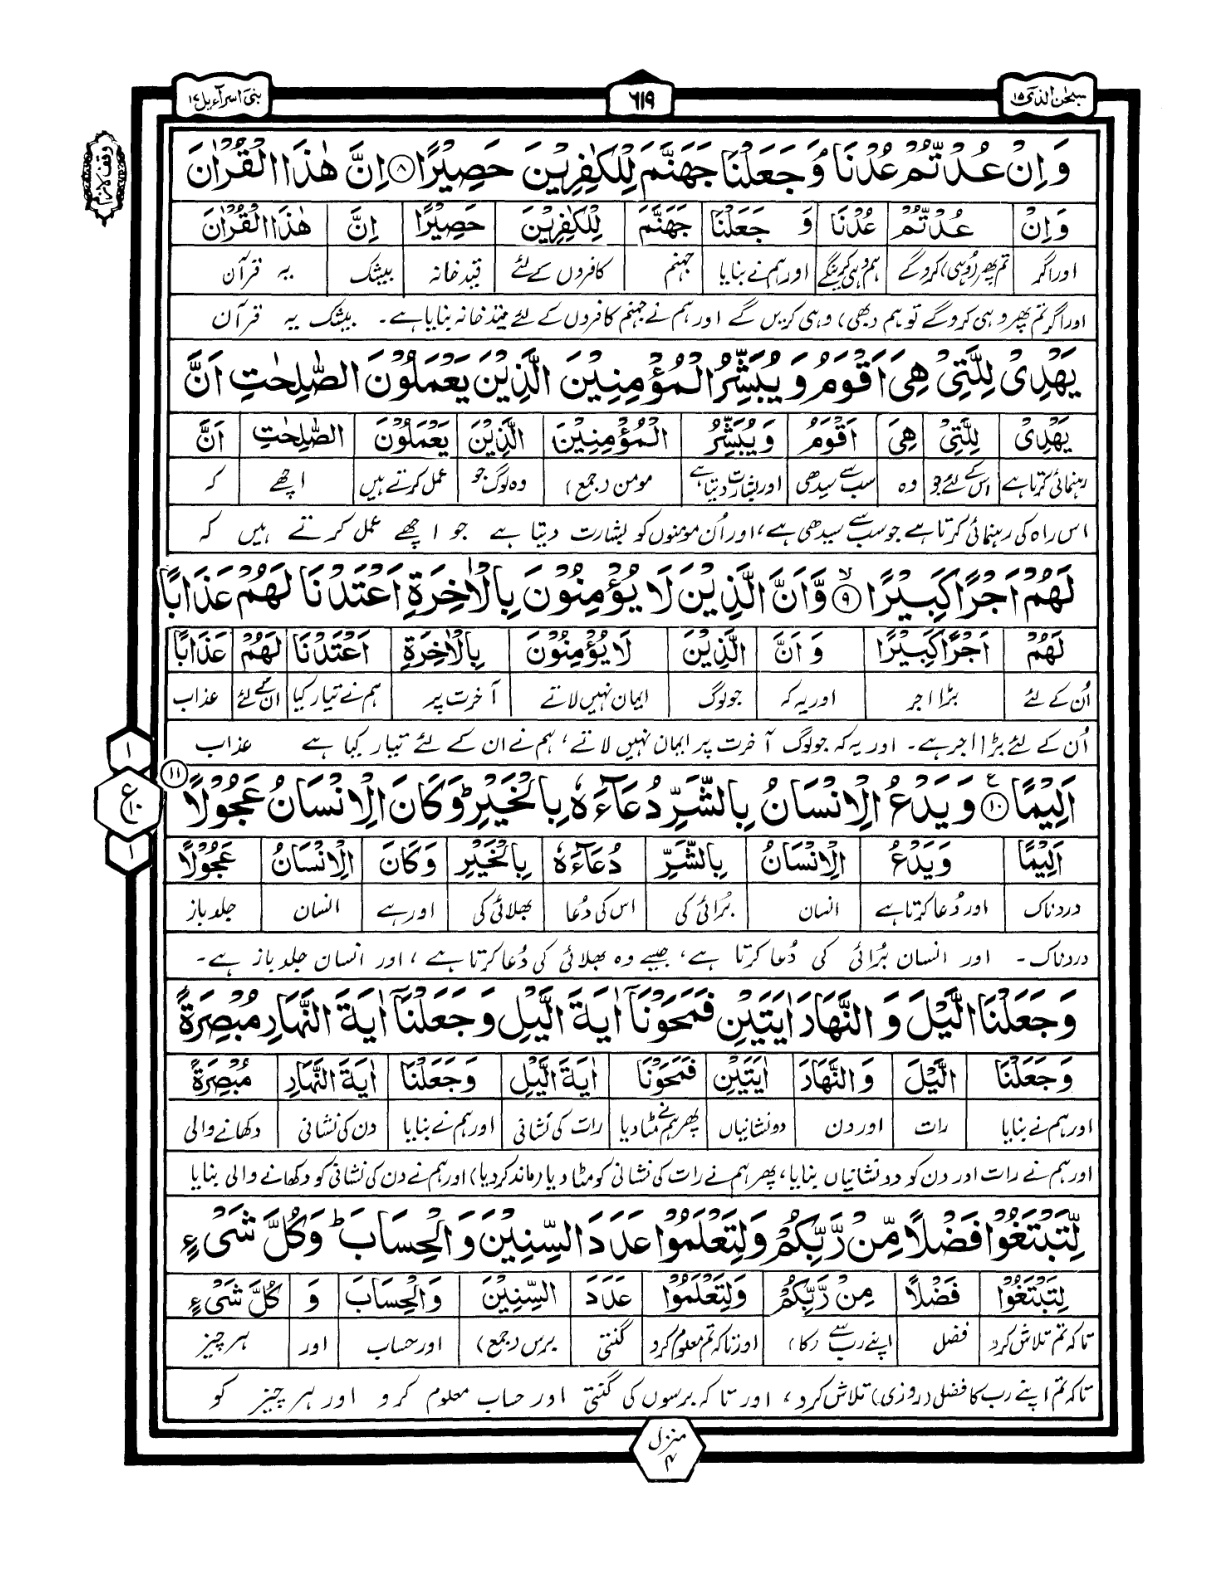 سبحٰن الذی ۱۵
۶۱۹
بنی اسرآءیل ۱۷
وقف لازم
وَاِنْ عُدْتُّمْ عُدْنَا وَجَعَلْنَا جَهَنَّمَ لِلْكٰفِرِيْنَ حَصِيْرًا ۸ اِنَّ هٰذَا الْقُرْاٰنَ
وَاِنْ عُدْتُّمْ عُدْنَا وَ جَعَلْنَا جَهَنَّمَ لِلْكٰفِرِيْنَ حَصِيْرًا اِنَّ هٰذَا الْقُرْاٰنَ
اور اگر تم پھر (وہی) کرو گے ہم وہی کرینگے اور ہم نے بنایا جہنم کافروں کے لئے قید خانہ بیشک یہ قرآن
اور اگر تم پھر وہی کرو گے تو ہم (بھی) وہی کریں گے اور ہم نے جہنم کافروں کے لئے قید خانہ بنایا ہے۔ بیشک یہ قرآن
يَهْدِيْ لِلَّتِيْ هِيَ اَقْوَمُ وَيُبَشِّرُ الْمُؤْمِنِيْنَ الَّذِيْنَ يَعْمَلُوْنَ الصّٰلِحٰتِ اَنَّ
يَهْدِيْ لِلَّتِيْ هِيَ اَقْوَمُ وَيُبَشِّرُ الْمُؤْمِنِيْنَ الَّذِيْنَ يَعْمَلُوْنَ الصّٰلِحٰتِ اَنَّ
رہنمائی کرتا ہے اس کے لئے جو وہ سب سے سیدھی اور بشارت دیتا ہے مومن (جمع) وہ لوگ جو عمل کرتے ہیں اچھے کہ
اس راہ کی رہنمائی کرتا ہے جو سب سے سیدھی ہے، اور اُن مومنوں کو بشارت دیتا ہے جو اچھے عمل کرتے ہیں کہ
لَهُمْ اَجْرًا كَبِيْرًا ۹ وَّاَنَّ الَّذِيْنَ لَا يُؤْمِنُوْنَ بِالْاٰخِرَةِ اَعْتَدْنَا لَهُمْ عَذَابًا
لَهُمْ اَجْرًا كَبِيْرًا وَ اَنَّ الَّذِيْنَ لَا يُؤْمِنُوْنَ بِالْاٰخِرَةِ اَعْتَدْنَا لَهُمْ عَذَابًا
اُن کے لئے بڑا اجر اور یہ کہ جو لوگ ایمان نہیں لاتے آخرت پر ہم نے تیار کیا ان کے لئے عذاب
اُن کے لئے بڑا اجر ہے۔ اور یہ کہ جو لوگ آخرت پر ایمان نہیں لاتے، ہم نے ان کے لئے تیار کیا ہے عذاب
۱
ع ۱۰
۱
اَلِيْمًا ۱۰ وَيَدْعُ الْاِنْسَانُ بِالشَّرِّ دُعَآءَهٗ بِالْخَيْرِ وَكَانَ الْاِنْسَانُ عَجُوْلًا ۱۱
اَلِيْمًا وَيَدْعُ الْاِنْسَانُ بِالشَّرِّ دُعَآءَهٗ بِالْخَيْرِ وَكَانَ الْاِنْسَانُ عَجُوْلًا
دردناک اور دُعا کرتا ہے انسان بُرائی کی اس کی دُعا بھلائی کی اور ہے انسان جلد باز
دردناک۔ اور انسان بُرائی کی دُعا کرتا ہے، جیسے وہ بھلائی کی دُعا کرتا ہے، اور انسان جلد باز ہے۔
وَجَعَلْنَا الَّيْلَ وَ النَّهَارَ اٰيَتَيْنِ فَمَحَوْنَاۤ اٰيَةَ الَّيْلِ وَجَعَلْنَاۤ اٰيَةَ النَّهَارِ مُبْصِرَةً
وَجَعَلْنَا الَّيْلَ وَ النَّهَارَ اٰيَتَيْنِ فَمَحَوْنَا اٰيَةَ الَّيْلِ وَجَعَلْنَا اٰيَةَ النَّهَارِ مُبْصِرَةً
اور ہم نے بنایا رات اور دن دو نشانیاں پھر ہم نے مٹا دیا رات کی نشانی اور ہم نے بنایا دن کی نشانی دکھانے والی
اور ہم نے رات اور دن کو دو نشانیاں بنایا، پھر ہم نے رات کی نشانی کو مٹا دیا (ماند کر دیا) اور ہم نے دن کی نشانی کو دکھانے والی بنایا
لِّتَبْتَغُوْا فَضْلًا مِّنْ رَّبِّكُمْ وَلِتَعْلَمُوْا عَدَدَ السِّنِيْنَ وَالْحِسَابَ ؕ وَكُلَّ شَيْءٍ
لِتَبْتَغُوْا فَضْلًا مِنْ رَّبِّكُمْ وَلِتَعْلَمُوْا عَدَدَ السِّنِيْنَ وَالْحِسَابَ وَ كُلَّ شَيْءٍ
تاکہ تم تلاش کرو فضل اپنے رب سے (کا) اور تاکہ تم معلوم کرو گنتی برس (جمع) اور حساب اور ہر چیز
تاکہ تم اپنے رب کا فضل (روزی) تلاش کرو، اور تاکہ برسوں کی گنتی اور حساب معلوم کرو اور ہر چیز کو
منزل ۴